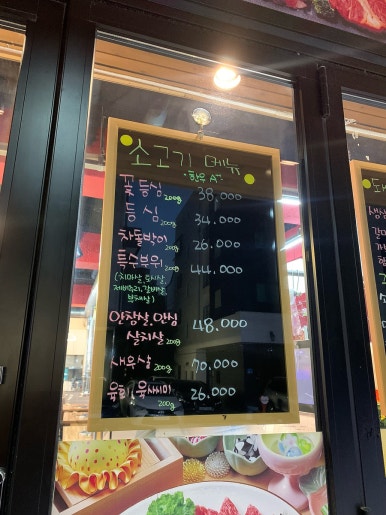 소고기 메뉴
한우 A+
꽃등심 200g 38,000
등심 200g 34,000
차돌박이 200g 26,000
특수부위 200g 44,000
(치마살, 토시살,
제비추리, 갈비살,
부채살)
안창살, 안심
살치살 200g 48,000
새우살 200g 70,000
육회, 육사시미 200g 26,000